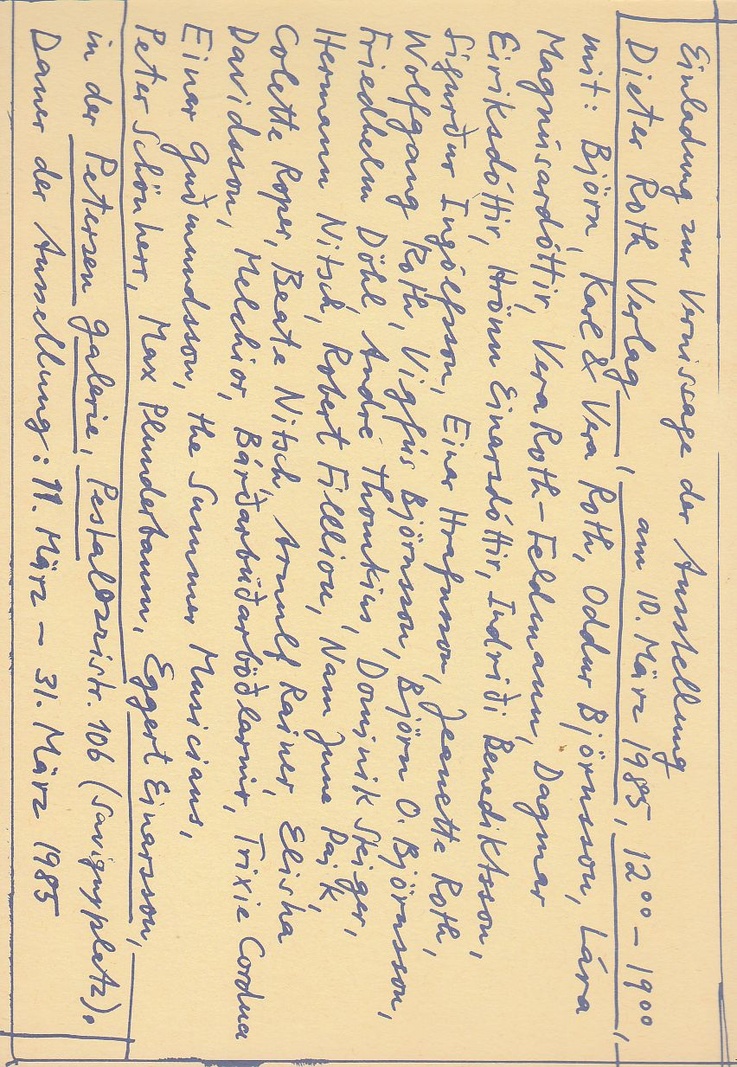 Einladung zur Vernissage der Ausstellung
Dieter Roth Verlag, am 10. März 1985, 12⁰⁰ – 19⁰⁰,
mit: Björn, Karl & Vera Roth, Oddur Björnsson, Lára
Magnúsardóttir, Vera Roth-Feldmann, Dagmar
Eiriksdóttir, Hrönn Einarsdóttir, Indriði Benediktsson,
Sigurður Ingólfsson, Einar Hrafnsson, Jeanette Roth,
Wolfgang Roth, Vigfús Björnsson, Björn O. Björnsson,
Friedhelm Döhl, André Thomkins, Dominik Steiger,
Hermann Nitsch, Robert Filliou, Nam June Paik,
Colette Roper, Beate Nitsch, Arnulf Rainer, Elisha
Davidsson, Melchior, Bárðarbúðarböðlarnir, Trixie Cordua
Einar Guðmundsson, the Summer Musicians,
Peter Schönherr, Max Plunderbaum, Eggert Einarsson,
in der Petersen Galerie, Pestalozzistr. 106 (Savignyplatz).
Dauer der Ausstellung: 11. März – 31. März 1985